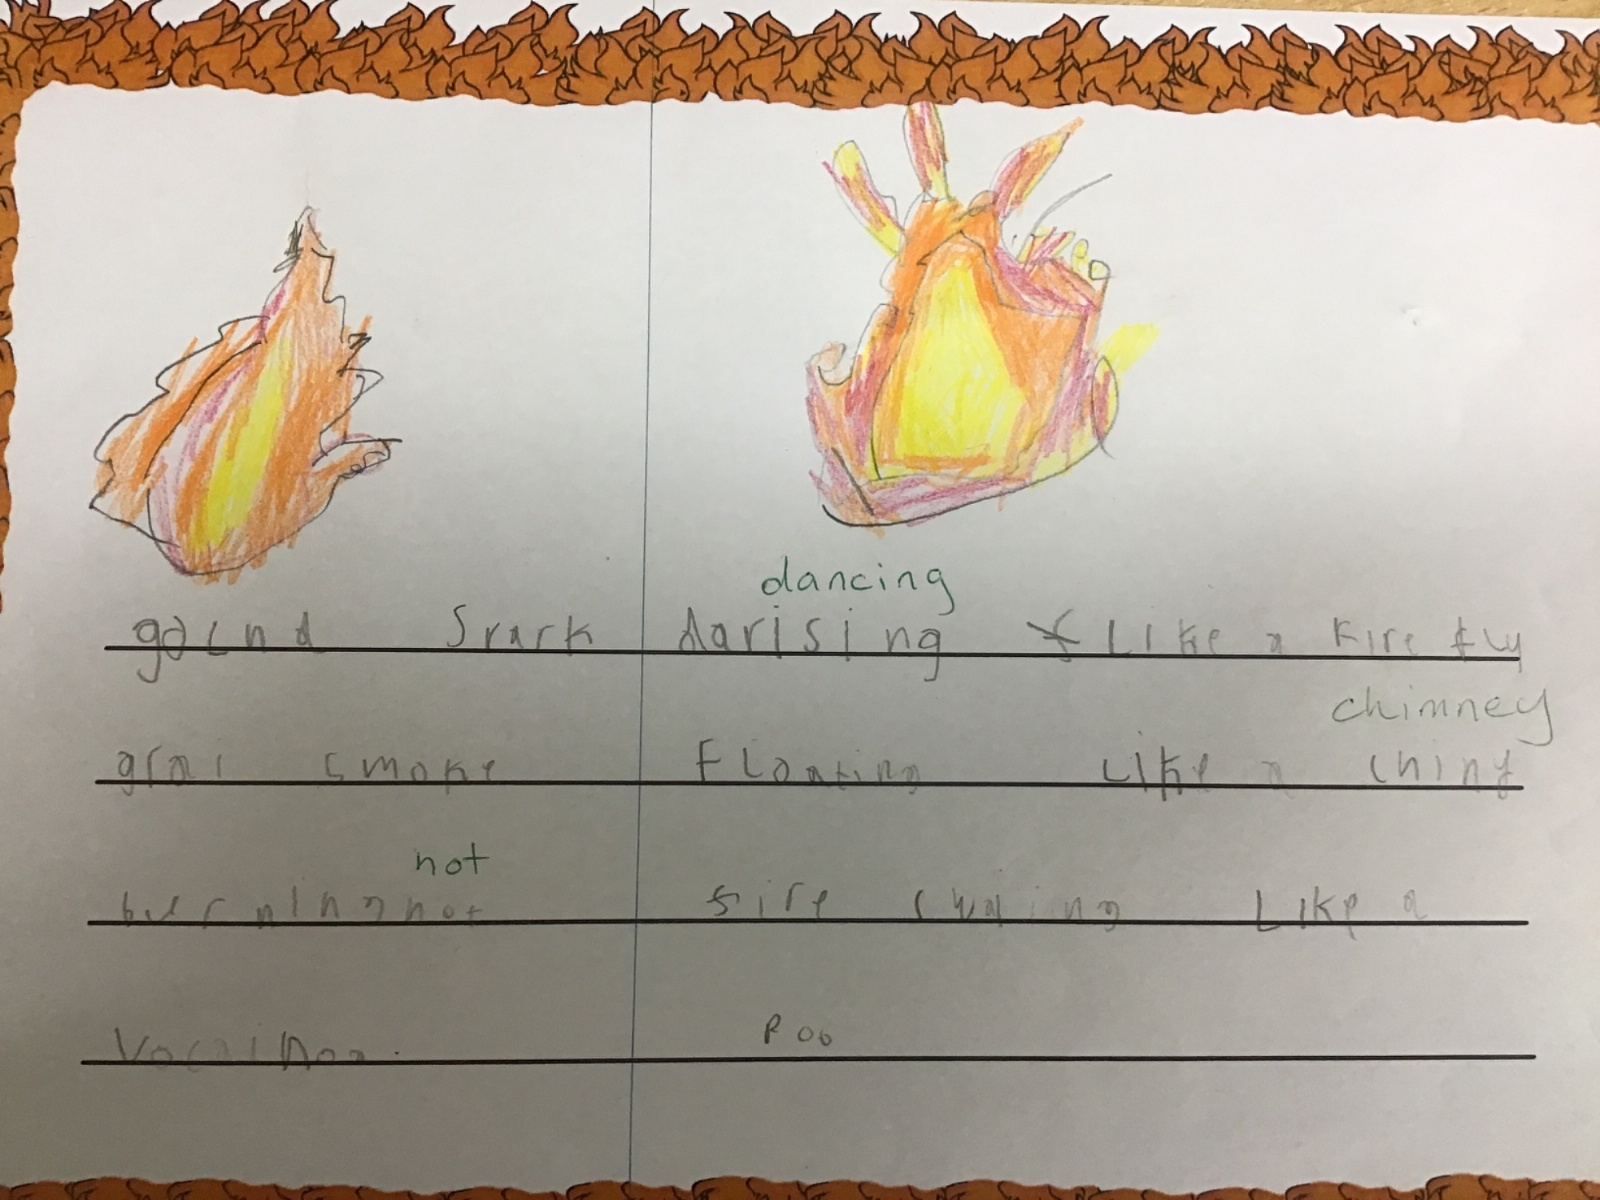 dancing
gold Srark darising Like a Fire fly
chimney
grai smoke Floating Like a chiny
not
burning hot fire Like a
Vocalnoa.
Poo